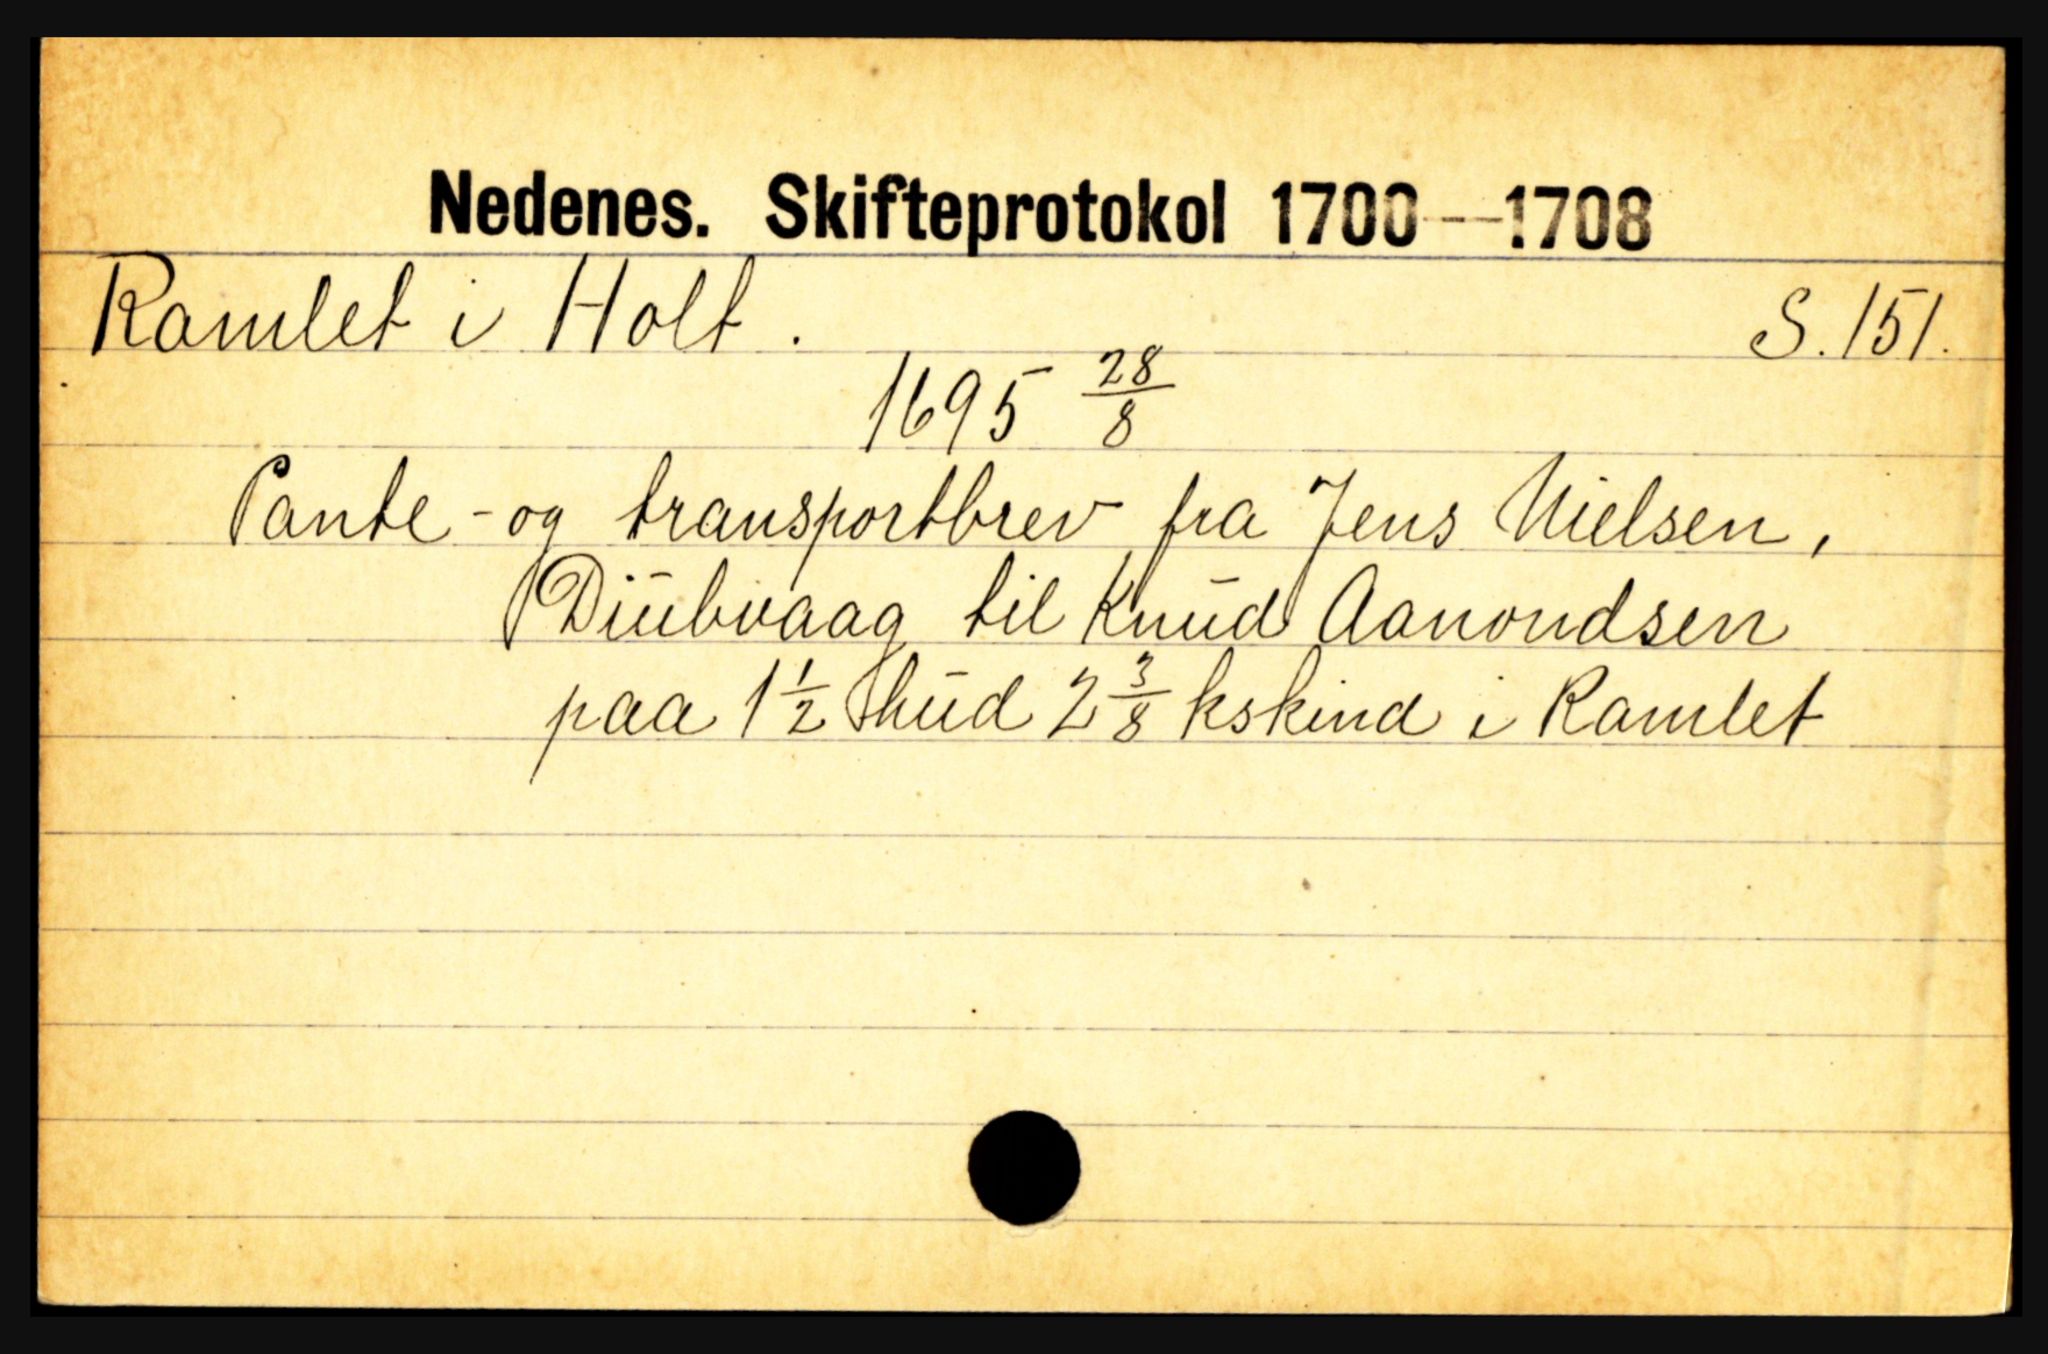 Nedenes. Skifteprotokol 1700—1708
Ramlet i Holt. S. 151.
1695 28/8
Pante- og transportbrev fra Jens Nielsen,
Diubvaag til Knud Aanondsen
paa 1 1/2 hud 2 3/8 kskind i Ramlet